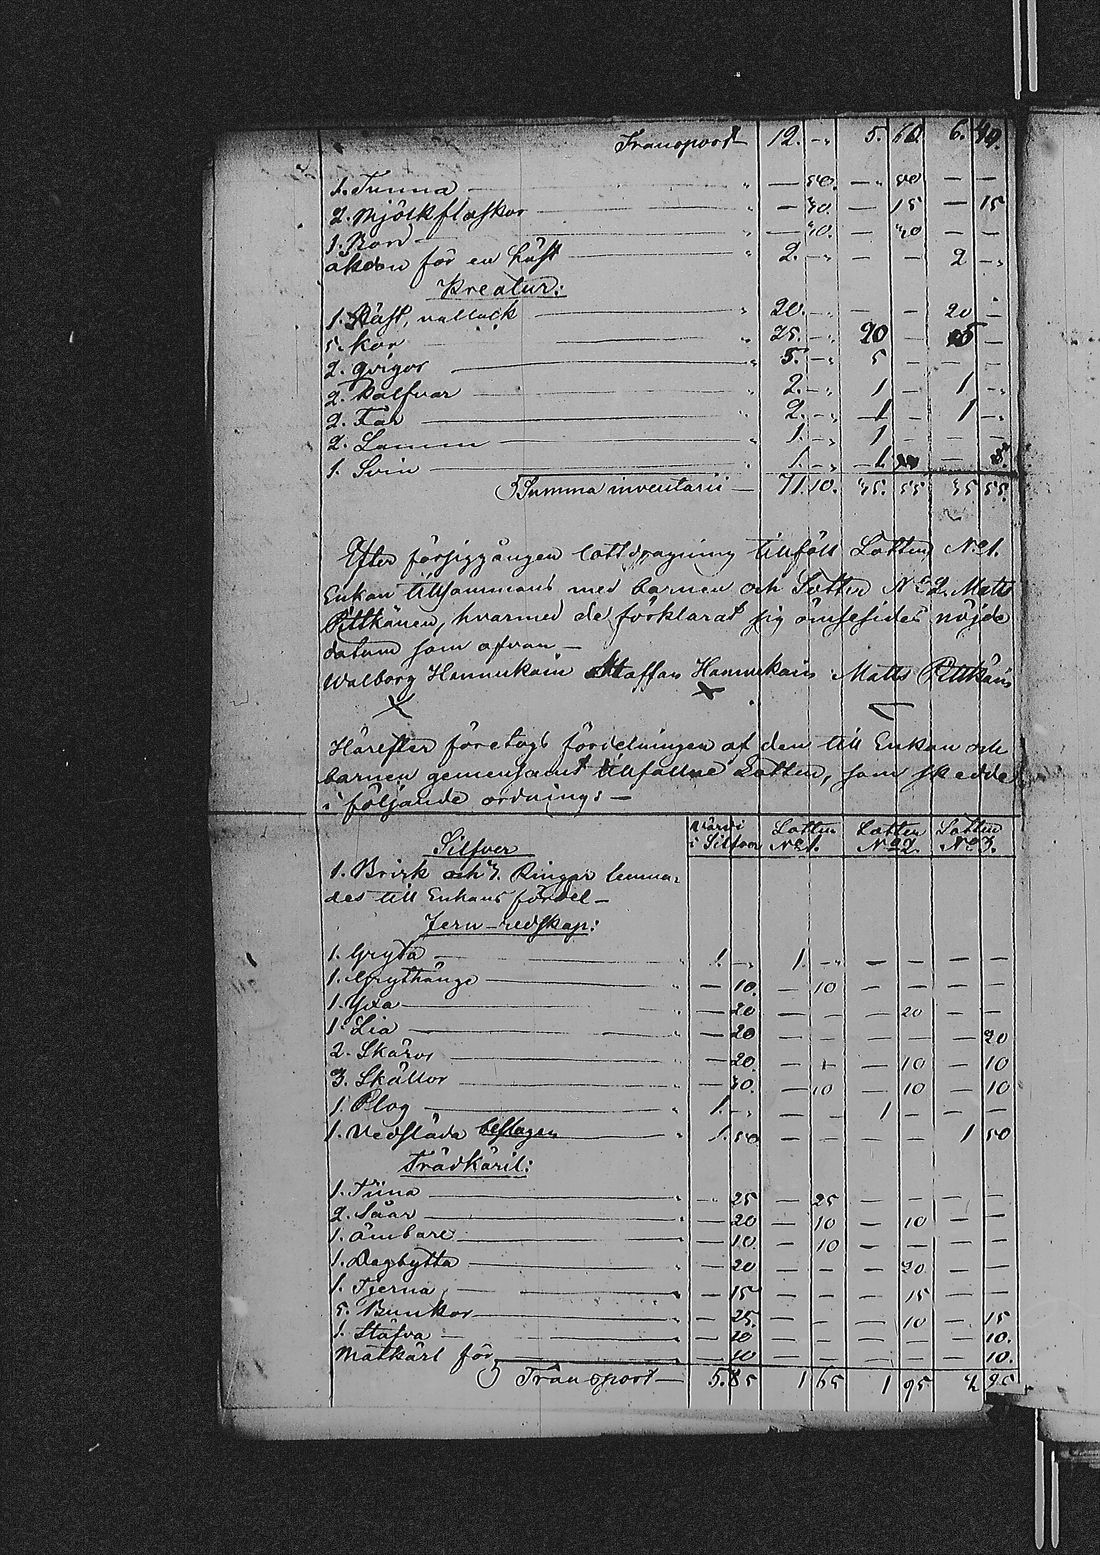 Transport 12. -. 5. 60. 6. 40.
1. Tunna — " — 80. — " 80 — —
2. Mjölkflaskor — " — 30. — 15 — 15
1. Bord — " — 40. — 40 — —
åkdon för en häst — " 2. -. — — 2 -.
Kreatur:
1. Häst, vallack — " 20. -. — — 20 —
5. kor — " 25. -. 20 — 5 —
2. qvigor — " 5. -. 5 — — —
2. Kalfvar — " 2. -. 1 — 1 -.
2. Får — " 2. -. 1 — 1 -.
2. Lamm — " 1. -. 1 — — —
1. Svin — " 1. -. 1 —
Summa inventarii — 71. 10. 35. 55 35 55.
Efter försiggången lottdragning tillföll Lotten No 1.
Enkan tillsammans med barnen och Lotten No 2. Matts
Pittkänen, hvarmed de förklarat sig ömsesides nöjde
datum som ofvan —
Walborg Hannukain Staffan Hannukain Matts Pittkäin
X X
Härefter företogs fördelningen af den till Enkan och
barnen gemensamt tillfallne Lotten, som skedde
i följande ordning: —
Värde i Silfver Lotten No 1. Lotten No 2. Lotten No 3.
Silfver
1. Brisk och 7. Ringar lemna-
des till Enkans fördel —
Jern-redskap:
1. Gryta — " 1. -. 1. -. — — — —
1. Grythänge — " — 10. — 10 — — — —
1. Yxa — " — 20 — — — 20 — —
1. Lia — " — 20 — — — — — 20
2. Skäror — " — 20. — — — 10 — 10
3. Skällor — " — 30. — 10 — 10 — 10
1. Plog — " 1. -. — — 1 — — —
1. Vedsläda beslagen — " 1. 50 — — — — 1 50
Trädkäril:
1. Tiina — " — 25 — 25 — — — —
2. Såar — " — 20 — 10 — 10 — —
1. ämbare — " — 10. — 10 — — — —
1. Degbytta — " — 20 — — — 20 — —
1. Tjerna — " — 15 — — — 15 — —
5. Bunkor — " — 25. — — — 10 — 15
1. Stäfva — " — 10 — — — — — 10.
Matkärl för — " — 10 — — — — — 10.
Transport — 5. 85 1 65 1 95 2 25